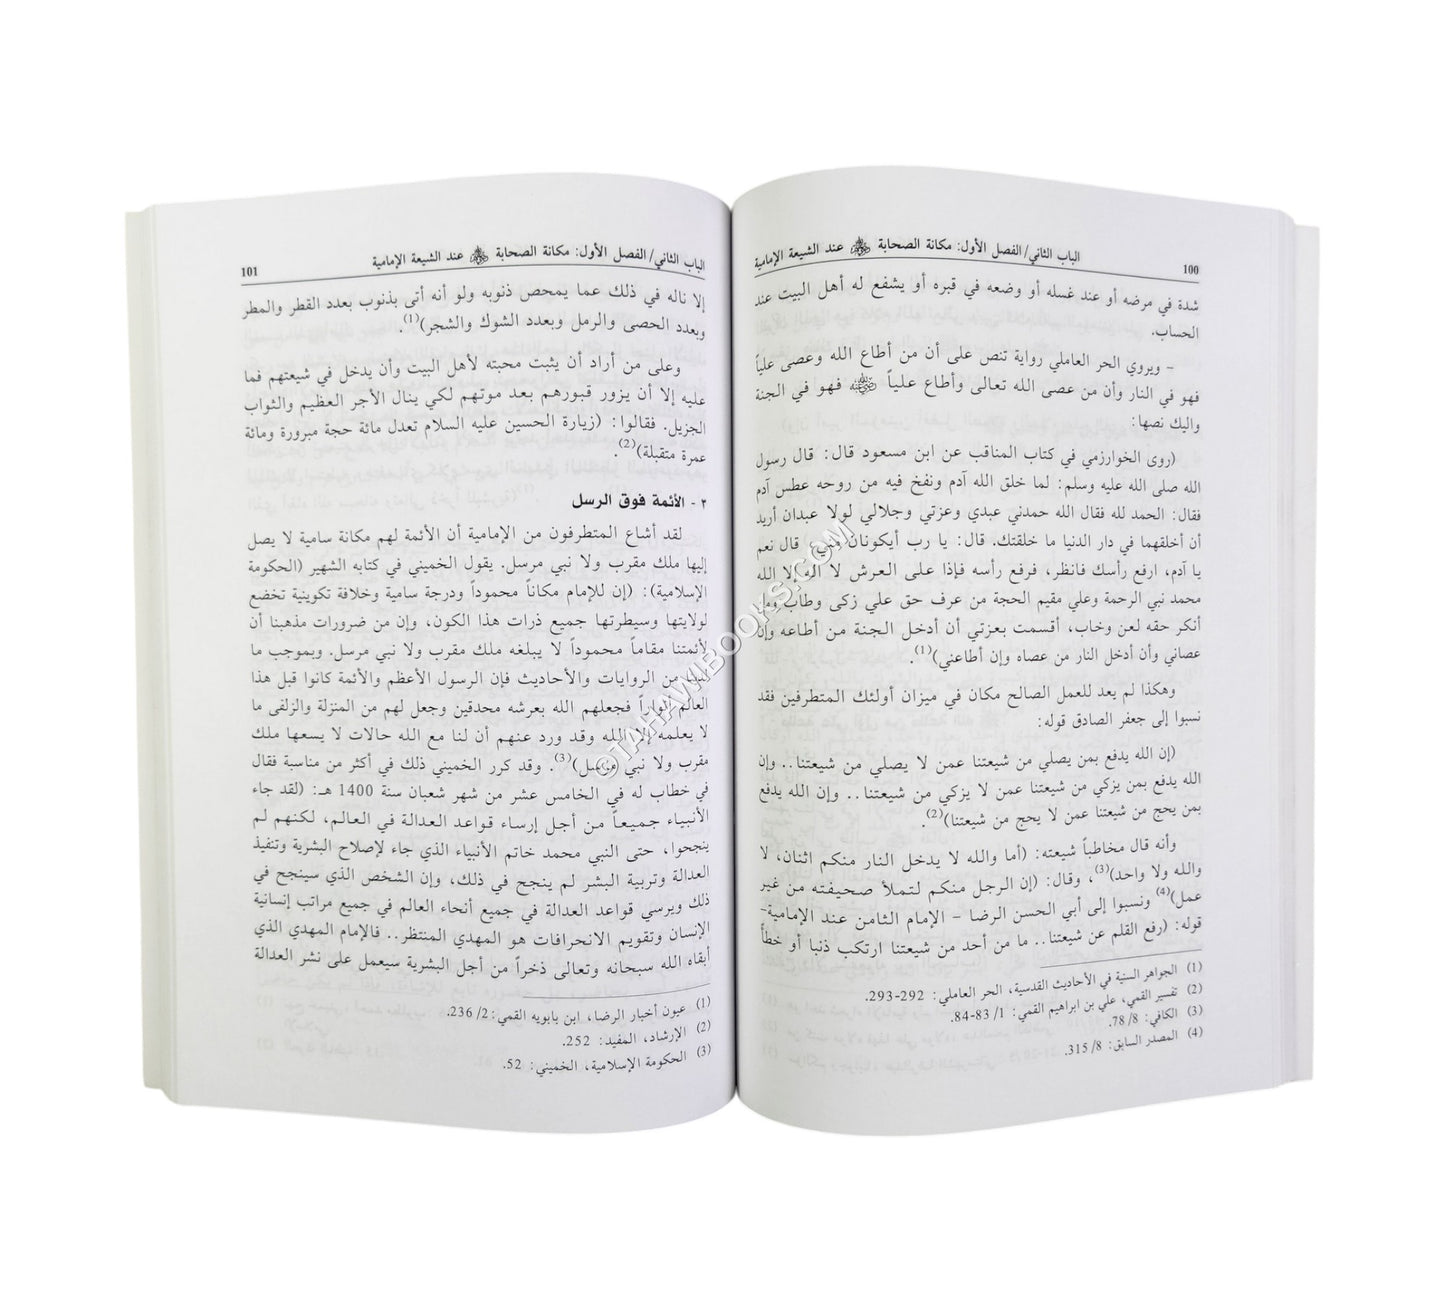 100
الباب الثاني/ الفصل الأول: مكانة الصحابة ﷺ عند الشيعة الإمامية
شدة في مرضه أو عند غسله أو وضعه في قبره أو يشفع له أهل البيت عند
الحساب.
- ويروي الحر العاملي رواية تنص على أن من أطاع الله وعصى علياً
فهو في النار وأن من عصى الله تعالى وأطاع علياً فهو في الجنة
واليك نصها:
(روى الخوارزمي في كتاب المناقب عن ابن مسعود قال: قال رسول
الله صلى الله عليه وسلم: لما خلق الله آدم ونفخ فيه من روحه عطس آدم
فقال: الحمد لله فقال الله حمدني عبدي وعزتي وجلالي لولا عبدان أريد
أن أخلقهما في دار الدنيا ما خلقتك. قال: يا رب أيكونان مني، قال نعم
يا آدم، ارفع رأسك فانظر، فرفع رأسه فإذا على العرش لا اله إلا الله
محمد نبي الرحمة وعلي مقيم الحجة من عرف حق علي زكى وطاب ومن
أنكر حقه لعن وخاب، أقسمت بعزتي أن أدخل الجنة من أطاعه وإن
عصاني وأن أدخل النار من عصاه وإن أطاعني)(1).
وهكذا لم يعد للعمل الصالح مكان في ميزان أولئك المتطرفين فقد
نسبوا إلى جعفر الصادق قوله:
(إن الله يدفع بمن يصلي من شيعتنا عمن لا يصلي من شيعتنا.. وإن
الله يدفع بمن يزكي من شيعتنا عمن لا يزكي من شيعتنا.. وإن الله يدفع
بمن يحج من شيعتنا عمن لا يحج من شيعتنا)(2).
وأنه قال مخاطباً شيعته: (أما والله لا يدخل النار منكم اثنان، لا
والله ولا واحد)(3)، وقال: (إن الرجل منكم لتملأ صحيفته من غير
عمل)(4) ونسبوا إلى أبي الحسن الرضا - الإمام الثامن عند الإمامية-
قوله: (رفع القلم عن شيعتنا.. ما من أحد من شيعتنا ارتكب ذنبا أو خطأً
(1) الجواهر السنية في الأحاديث القدسية، الحر العاملي: 292-293.
(2) تفسير القمي، علي بن ابراهيم القمي: 1/ 83-84.
(3) الكافي: 8/ 78.
(4) المصدر السابق: 8/ 315.
الباب الثاني/ الفصل الأول: مكانة الصحابة عند الشيعة الإمامية
101
إلا ناله في ذلك عما يمحص ذنوبه ولو أنه أتى بذنوب بعدد القطر والمطر
وبعدد الحصى والرمل وبعدد الشوك والشجر)(1).
وعلى من أراد أن يثبت محبته لأهل البيت وأن يدخل في شيعتهم فما
عليه إلا أن يزور قبورهم بعد موتهم لكي ينال الأجر العظيم والثواب
الجزيل. فقالوا: (زيارة الحسين عليه السلام تعدل مائة حجة مبرورة ومائة
عمرة متقبلة)(2).
٢ - الأئمة فوق الرسل
لقد أشاع المتطرفون من الإمامية أن الأئمة لهم مكانة سامية لا يصل
إليها ملك مقرب ولا نبي مرسل. يقول الخميني في كتابه الشهير (الحكومة
الإسلامية): (إن للإمام مكاناً محموداً ودرجة سامية وخلافة تكوينية تخضع
لولايتها وسيطرتها جميع ذرات هذا الكون، وإن من ضرورات مذهبنا أن
لأئمتنا مقاماً محموداً لا يبلغه ملك مقرب ولا نبي مرسل. وبموجب ما
لدينا من الروايات والأحاديث فإن الرسول الأعظم والأئمة كانوا قبل هذا
العالم أنواراً فجعلهم الله بعرشه محدقين وجعل لهم من المنزلة والزلفى ما
لا يعلمه إلا الله وقد ورد عنهم أن لنا مع الله حالات لا يسعها ملك
مقرب ولا نبي مرسل)(3). وقد كرر الخميني ذلك في أكثر من مناسبة فقال
في خطاب له في الخامس عشر من شهر شعبان سنة 1400 هـ: (لقد جاء
الأنبياء جميعاً من أجل إرساء قواعد العدالة في العالم، لكنهم لم
ينجحوا، حتى النبي محمد خاتم الأنبياء الذي جاء لإصلاح البشرية وتنفيذ
العدالة وتربية البشر لم ينجح في ذلك، وإن الشخص الذي سينجح في
ذلك ويرسي قواعد العدالة في جميع أنحاء العالم في جميع مراتب إنسانية
الإنسان وتقويم الانحرافات هو المهدي المنتظر.. فالإمام المهدي الذي
أبقاه الله سبحانه وتعالى ذخراً من أجل البشرية سيعمل على نشر العدالة
(1) عيون أخبار الرضا، ابن بابويه القمي: 2/ 236.
(2) الإرشاد، المفيد: 252.
(3) الحكومة الإسلامية، الخميني: 52.
©TAHAWIBOOKS.COM